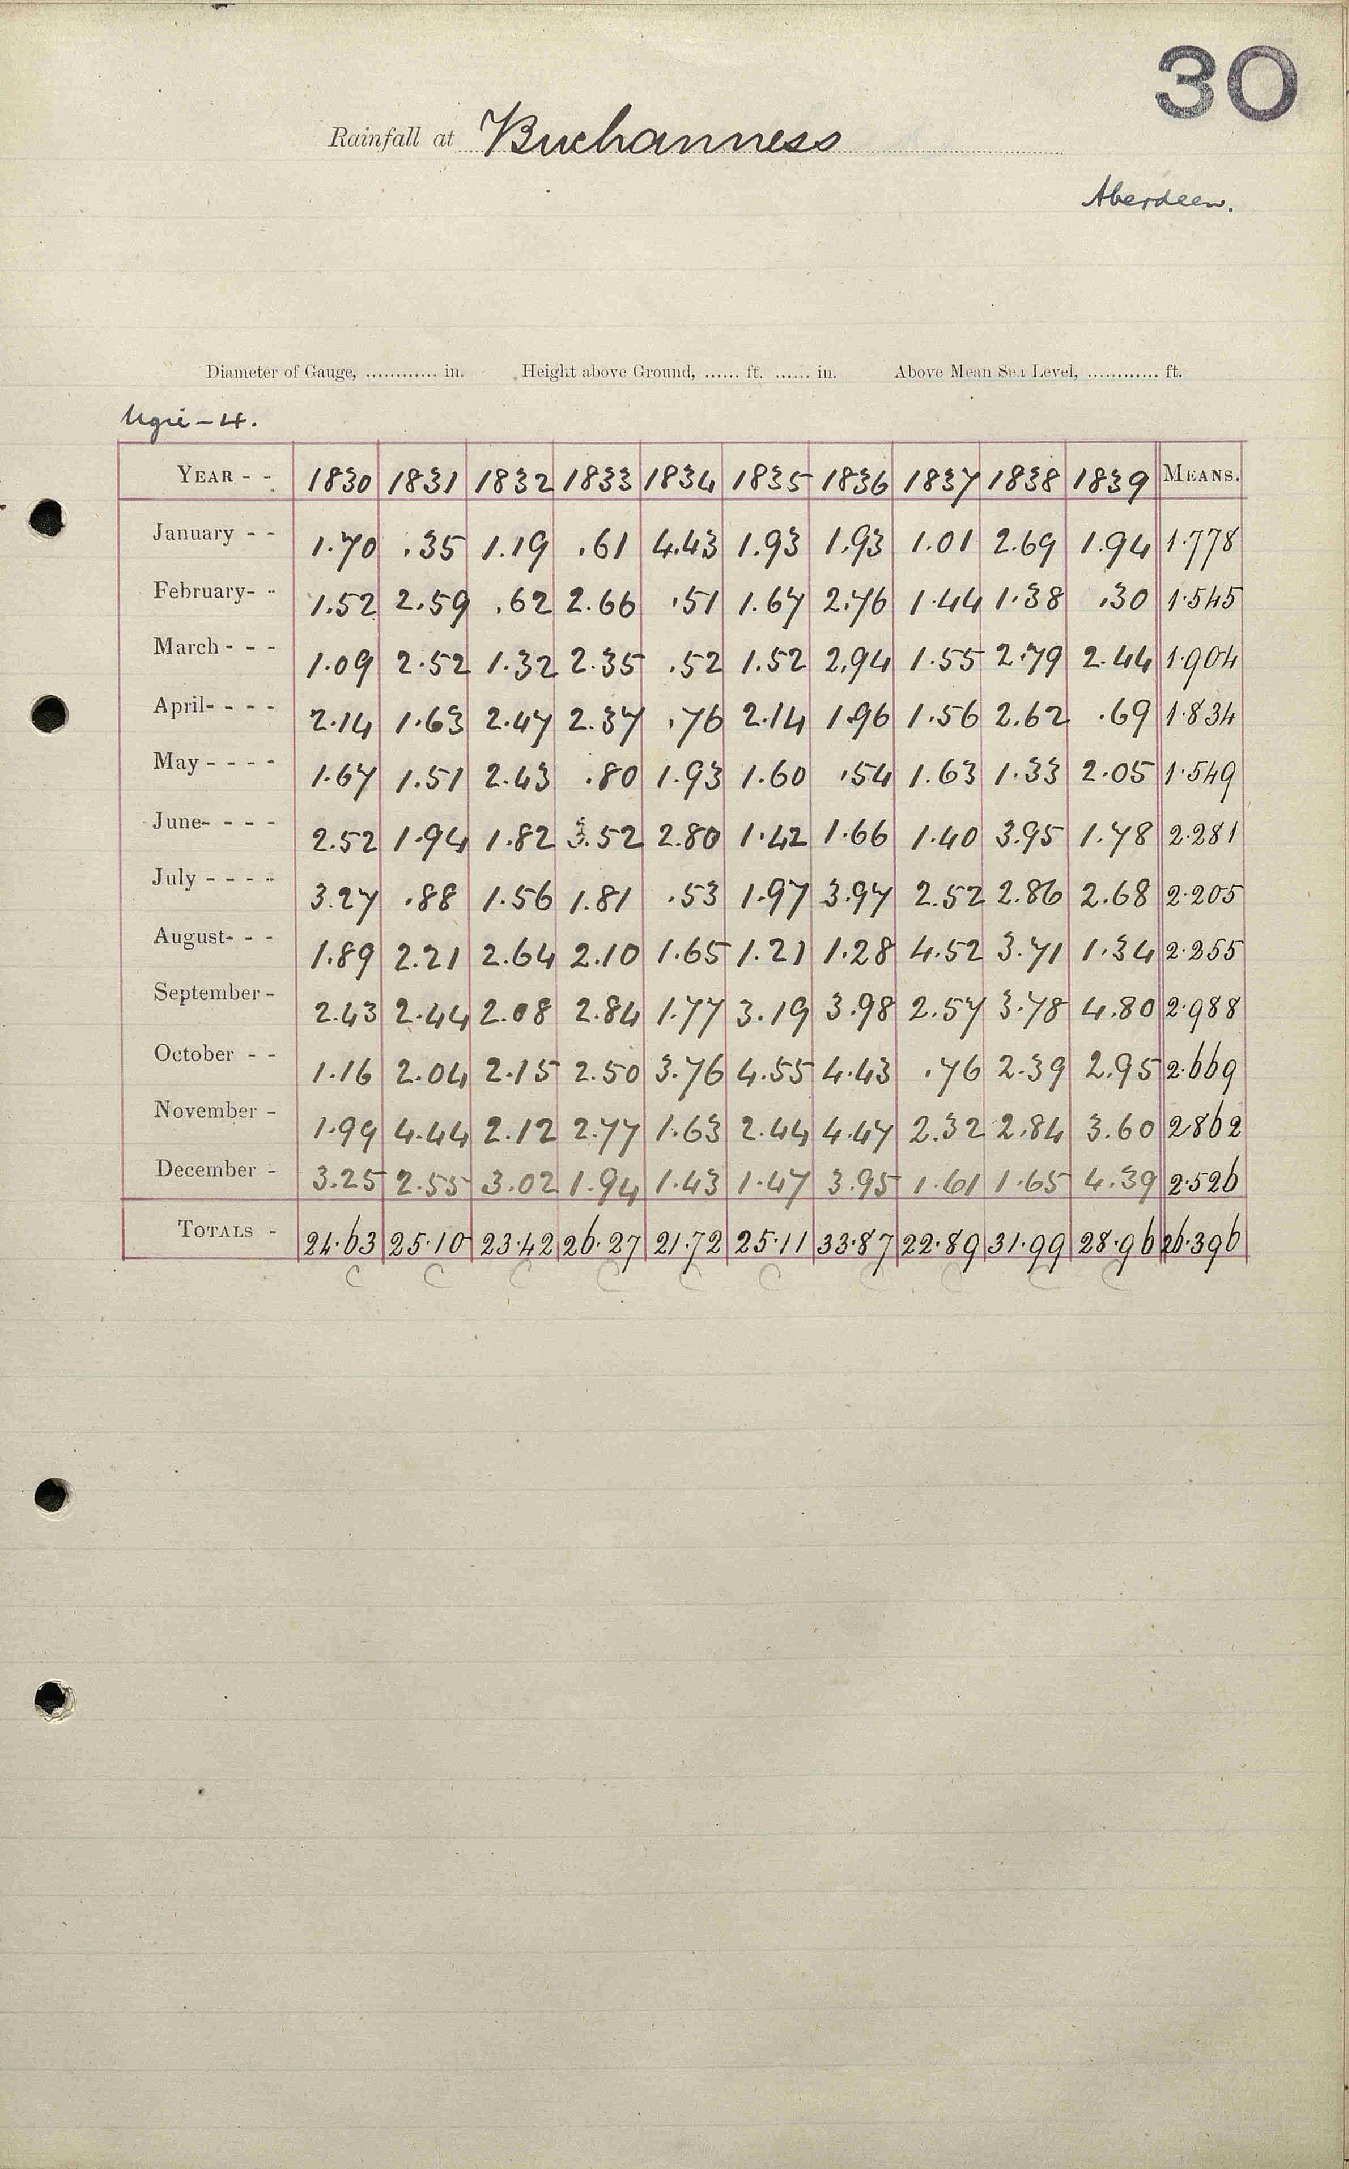 30
Rainfall at Buchanness
Aberdeen.
Diameter of Gauge, ............ in. Height above Ground, ...... ft. ...... in. Above Mean Sea Level, ............ ft.
Ugie - 4.
YEAR - - 1830 1831 1832 1833 1834 1835 1836 1837 1838 1839 MEANS.
January - - 1.70 .35 1.19 .61 4.43 1.93 1.93 1.01 2.69 1.94 1.778
February- - 1.52 2.59 .62 2.66 .51 1.67 2.76 1.44 1.38 .30 1.545
March - - - 1.09 2.52 1.32 2.35 .52 1.52 2.94 1.55 2.79 2.44 1.904
April- - - - 2.14 1.63 2.47 2.37 .76 2.14 1.96 1.56 2.62 .69 1.834
May - - - - 1.67 1.51 2.43 .80 1.93 1.60 .54 1.63 1.33 2.05 1.549
June- - - - 2.52 1.94 1.82 3.52 2.80 1.42 1.66 1.40 3.95 1.78 2.281
July - - - - 3.27 .88 1.56 1.81 .53 1.97 3.97 2.52 2.86 2.68 2.205
August- - - 1.89 2.21 2.64 2.10 1.65 1.21 1.28 4.52 3.71 1.34 2.255
September - 2.43 2.44 2.08 2.84 1.77 3.19 3.98 2.57 3.78 4.80 2.988
October - - 1.16 2.04 2.15 2.50 3.76 4.55 4.43 .76 2.39 2.95 2.669
November - 1.99 4.44 2.12 2.77 1.63 2.44 4.47 2.32 2.84 3.60 2.862
December - 3.25 2.55 3.02 1.94 1.43 1.47 3.95 1.61 1.65 4.39 2.526
TOTALS - 24.63 25.10 23.42 26.27 21.72 25.11 33.87 22.89 31.99 28.96 26.396
C C C C C C C C C C